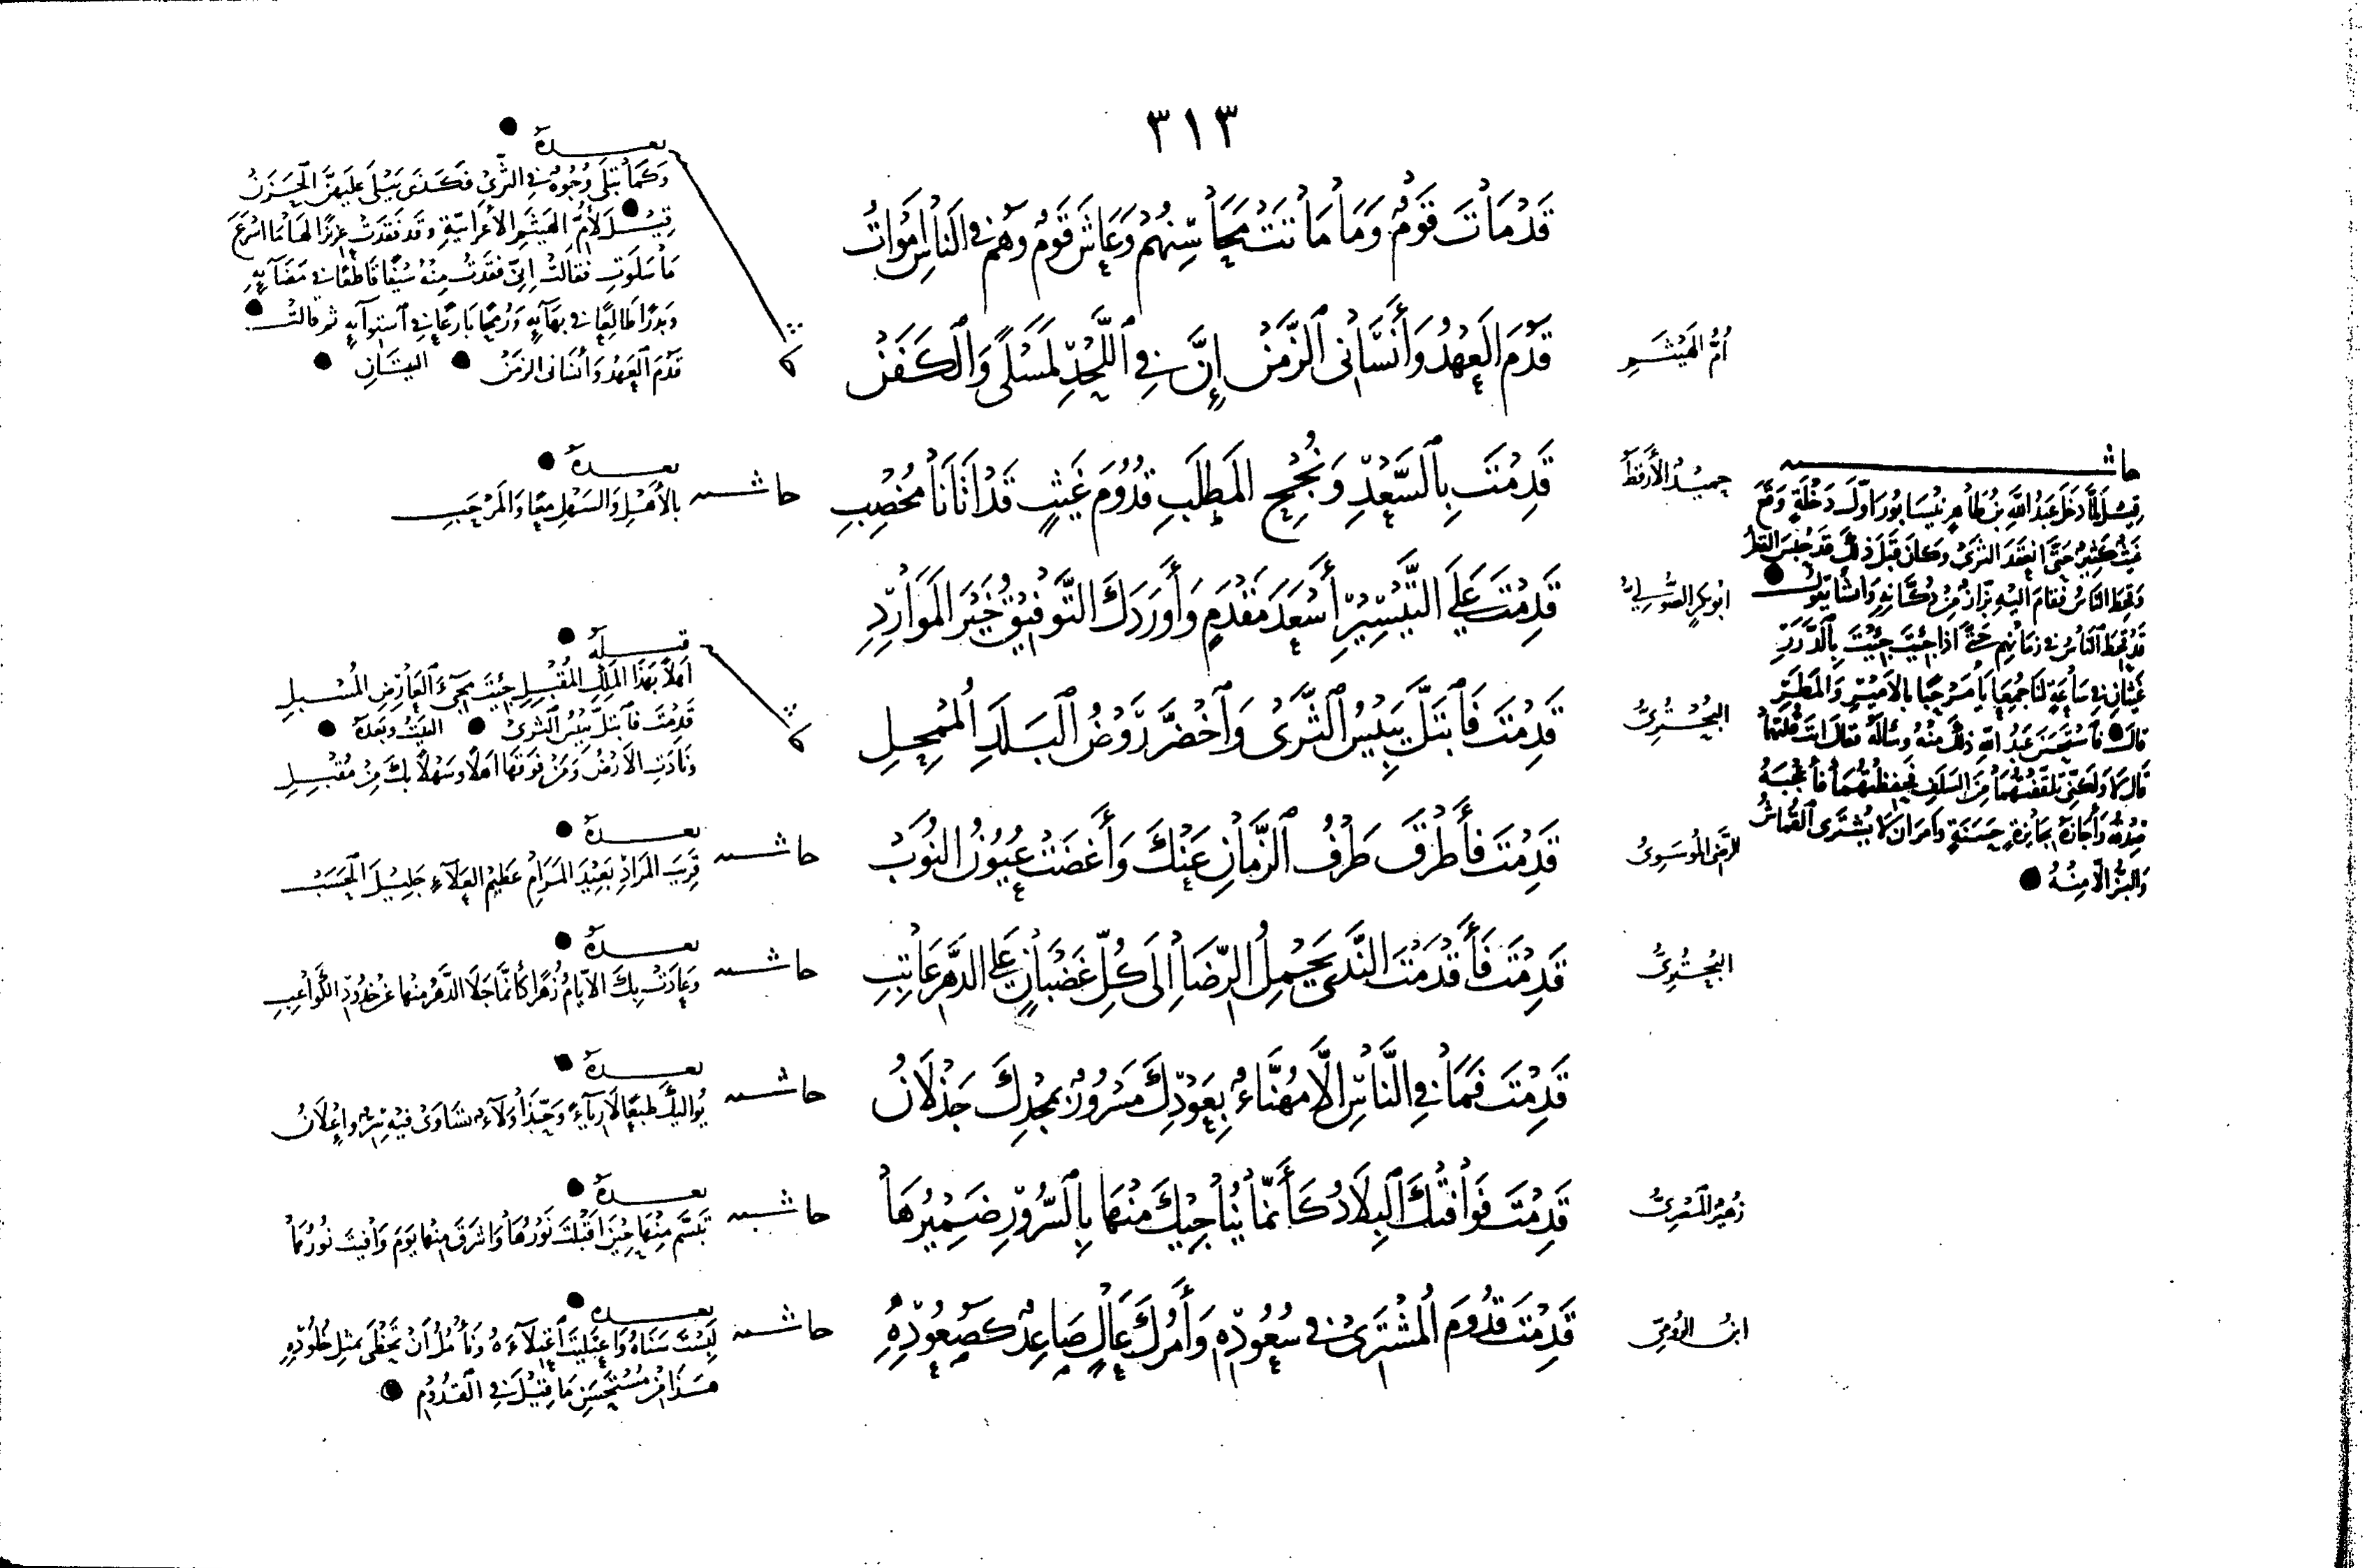 ٣١٣
قَدْ مَاتَ قَوْمٌ وَمَا مَاتَتْ مَحَاسِنُهُمْ وَعَاشَ قَوْمٌ وَهُمْ فِي النَّاسِ أَمْوَاتُ
أُمُّ الهَيْثَمِ
قَدُمَ العَهْدُ وَأَنْسَانِي الزَّمَنْ إِنَّ فِي اللَّحْدِ لَمَسْلًى وَالكَفَنْ
بعده
وَكَمَا تَبْلَى وُجُوهٌ فِي الثَّرَى فَكَذَى يَبْلَى عَلَيْهِنَّ الحَزَنْ
قِيْلَ لأُمِّ الهَيْثَمِ الأَعْرَابِيَّةِ وَقَدْ فَقَدَتْ عَزِيْزًا لَهَا مَا أَسْرَعَ
مَا سَلَوْتِ فَقَالَتْ إِنِّي فَقَدْتُ مِنْهُ سَيْفًا قَاطِعًا فِي مَضَائِهِ
وَبَدْرًا طَالِعًا فِي بَهَائِهِ وَرُمْحًا بَارِعًا فِي اسْتِوَائِهِ ثم قالت
قَدُمَ العَهْدُ وَأَنْسَانِي الزَّمَنْ البيتَانِ
حُمَيْدُ الأَرْقَطُ
قَدِمْتَ بِالسَّعْدِ وَنُجْحِ المَطْلَبِ قُدُوْمَ غَيْثٍ قَدْ أَتَانَا مُخْصِبِ
حاشية
بعده
بِالأَهْلِ وَالسَّهْلِ مَعًا وَالمَرْحَبِ
حاشية
قِيْلَ لَمَّا دَخَلَ عَبْدُ اللَّهِ بْنُ طَاهِرٍ نَيْسَابُوْرَ أَوَّلَ دَخْلَةٍ وَقَعَ
غَيْثٌ كَثِيْرٌ حَتَّى انْعَقَدَ الثَّرَى وَكَانَ قَبْلَ ذَلِكَ قَدْ حُبِسَ القَطْرُ
وَقَحِطَ النَّاسُ فَقَامَ إِلَيْهِ بَزَّازٌ مِنْ دُكَّانِهِ وَأَنْشَأَ يَقُوْلُ
قَدْ قُحِطَ النَّاسُ فِي زَمَانِهِمْ حَتَّى إِذَا جِئْتَ جِئْتَ بِالدُّرَرِ
غَيْثَانِ فِي سَاعَةٍ لَنَا جُمِعَا يَا مَرْحَبًا بِالأَمِيْرِ وَالمَطَرِ
قَالَ فَاسْتَحْسَنَ عَبْدُ اللَّهِ ذَلِكَ مِنْهُ وَسَأَلَهُ فَقَالَ أَنْتَ قُلْتَهُمَا
قَالَ لَا وَلَكِنِّي تَلَقَّفْتُهُمَا مِنَ السَّلَفِ فَحَفِظْتُهُمَا فَأَعْجَبَهُ
صِدْقُهُ وَأَجَازَهُ بِجَائِزَةٍ حَسَنَةٍ وَأَمَرَ أَنْ لَا يُشْتَرَى القُمَاشُ
وَالبَزُّ إِلَّا مِنْهُ
أَبُو بَكْرٍ الصُّوْلِيُّ
قَدِمْتَ عَلَى التَّيْسِيْرِ أَسْعَدَ مَقْدَمٍ وَأَوْرَدَكَ التَّوْفِيْقُ خَيْرَ المَوَارِدِ
البُحْتُرِيُّ
قَدِمْتَ فَابْتَلَّ يَبِيْسُ الثَّرَى وَاخْضَرَّ رَوْضُ البَلَدِ المُمْحِلِ
قبله
أَهْلًا بِهَذَا المَلِكِ المُقْبِلِ جِئْتَ مَجِيْءَ العَارِضِ المُسْبِلِ
قَدِمْتَ فَابْتَلَّ يَبِيْسُ الثَّرَى البَيْتُ وَبَعْدَهُ
وَنَادَتِ الأَرْضُ وَمَنْ فَوْقَهَا أَهْلًا وَسَهْلًا بِكَ مِنْ مُقْبِلِ
الرَّضِيُّ المُوْسَوِيُّ
قَدِمْتَ فَأَطْرَقَ طَرْفُ الزَّمَانِ عَنْكَ وَأَغْضَتْ عُيُوْنُ النُّوَبْ
حاشية
بعده
قَرِيْبَ المَرَادِ بَعِيْدَ المَرَامِ عَظِيْمَ العَلَاءِ جَلِيْلَ الحَسَبْ
البُحْتُرِيُّ
قَدِمْتَ فَأَقْدَمْتَ النَّدَى يَحْمِلُ الرِّضَا إِلَى كُلِّ غَضْبَانٍ عَلَى الدَّهْرِ عَاتِبِ
حاشية
بعده
وَعَادَتْ بِكَ الأَيَّامُ زُهْرًا كَأَنَّمَا جَلَا الدَّهْرُ مِنْهَا عَنْ خُدُوْدِ الكَوَاعِبِ
قَدِمْتَ فَمَا فِي النَّاسِ إِلَّا مُهَنَّاءٌ بِعَوْدِكَ مَسْرُوْرٌ بِمَجْدِكَ جَذْلَانُ
حاشية
بعده
يُوَالِيْكَ طَبْعًا لَا رِيَاءً وَحَبَّذَا وَلَاءٌ تَسَاوَى فِيْهِ سِرٌّ وَإِعْلَانُ
زُهَيْرُ المِصْرِيُّ
قَدِمْتَ فَوَافَتْكَ البِلَادُ كَأَنَّمَا يُنَاجِيْكَ مِنْهَا بِالسُّرُوْرِ ضَمِيْرُهَا
حاشية
بعده
تَبَسَّمَ مِنْهَا حِيْنَ أَقْبَلْتَ نَوْرُهَا وَأَشْرَقَ مِنْهَا يَوْمَ وَافَيْتَ نُوْرُهَا
ابْنُ الرُّوْمِيِّ
قَدِمْتَ قُدُوْمَ المُشْتَرِي فِي سُعُوْدِهِ وَأَمْرُكَ عَالٍ صَاعِدٌ كَصُعُوْدِهِ
حاشية
بعده
لَبِسْتَ سَنَاهُ وَاعْتَلَيْتَ اعْتِلَاءَهُ وَنَأْمُلُ أَنْ تَحْظَى بِمِثْلِ خُلُوْدِهِ
هَذَا مِنْ مُسْتَحْسَنِ مَا قِيْلَ فِي القُدُوْمِ